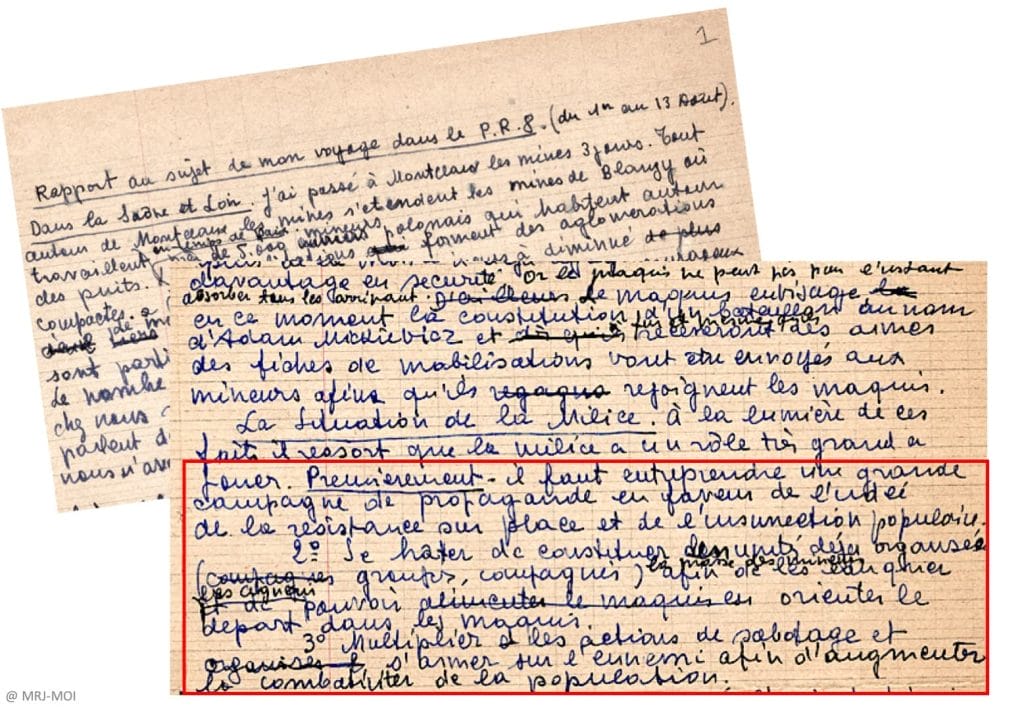 1
Rapport au sujet de mon voyage dans le P.R.8. (du 1er au 13 Août).
Dans la Saône et Loir. J'ai passé à Montceaux les mines 3 jours. Tout
autour de Montceaux les mines s'etendent les mines de Blanzy où
travaillent en temps de paix mineurs
plus de 5.000 ouvriers polonais qui habitent autour
des puits. forment des aglomerations
compactes. a diminué de plus
sont parti
Le nombre
chez nous
parlent d
nous n'av
davantage en securité Or le maquis ne peut pas pour l'instant
absorber tous les arrivant. J'ai ailleurs Le maquis envisage la
en ce moment la constitution d'un bataillon au nom
d'Adam Mickiewicz et receveront des armes
des fiches de mobilisations vont etre envoyés aux
mineurs afins qu'ils regagne rejoignent les maquis.
La Situation de la Milice. à la lumière de ces
faits il ressort que la milice a un rôle très grand a
jouer. Premièrement - il faut entreprendre une grande
campagne de propagande en faveur de l'idéé
de la resistance sur place et de l'insurrection populaire.
2º Se hater de constituer des unités déja organsée
la masse des mineurs
(compagnies groupes, compagnies) afin de les
et de pouvoir alimenter le maquis en orienter le
depart dans les maquis.
3º Multiplier les actions de sabotage et
organiser s'armer sur l'ennemi afin d'augmenter
la combativiter de la population.
@ MRJ-MOI